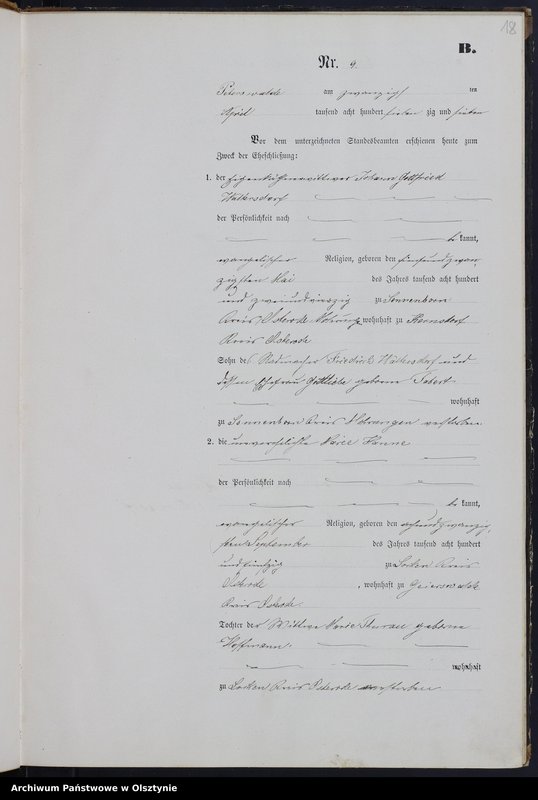 18
B.
Nr. 9.
Peterswalde am zwanzigsten
April tausend acht hundert sieben zig und sieben
Vor dem unterzeichneten Standesbeamten erschienen heute zum
Zweck der Eheschließung:
1. der Johann Gottfried
Waltersdorf
der Persönlichkeit nach
be kannt,
evangelischer Religion, geboren den fünfundzwan
zigsten Mai des Jahres tausend acht hundert
und zweiundvierzig zu Sonnenborn
Kreis wohnhaft zu
Kreis Osterode
Sohn des Friedrich Waltersdorf und
dessen Ehefrau Gottliebe geborne
wohnhaft
zu Sonnenborn Kreis Mohrungen verstorben
2. die unverehelichte Marie Hanne
der Persönlichkeit nach
be kannt,
evangelischer Religion, geboren den achtundzwanzig
sten September des Jahres tausend acht hundert
und fünfzig zu Locken Kreis
Osterode, wohnhaft zu Geierswalde
Kreis Osterode.
Tochter der Wittwe Marie Thurau geborne
Hoffmann.
wohnhaft
zu Locken Kreis Osterode verstorben
Archiwum Państwowe w Olsztynie